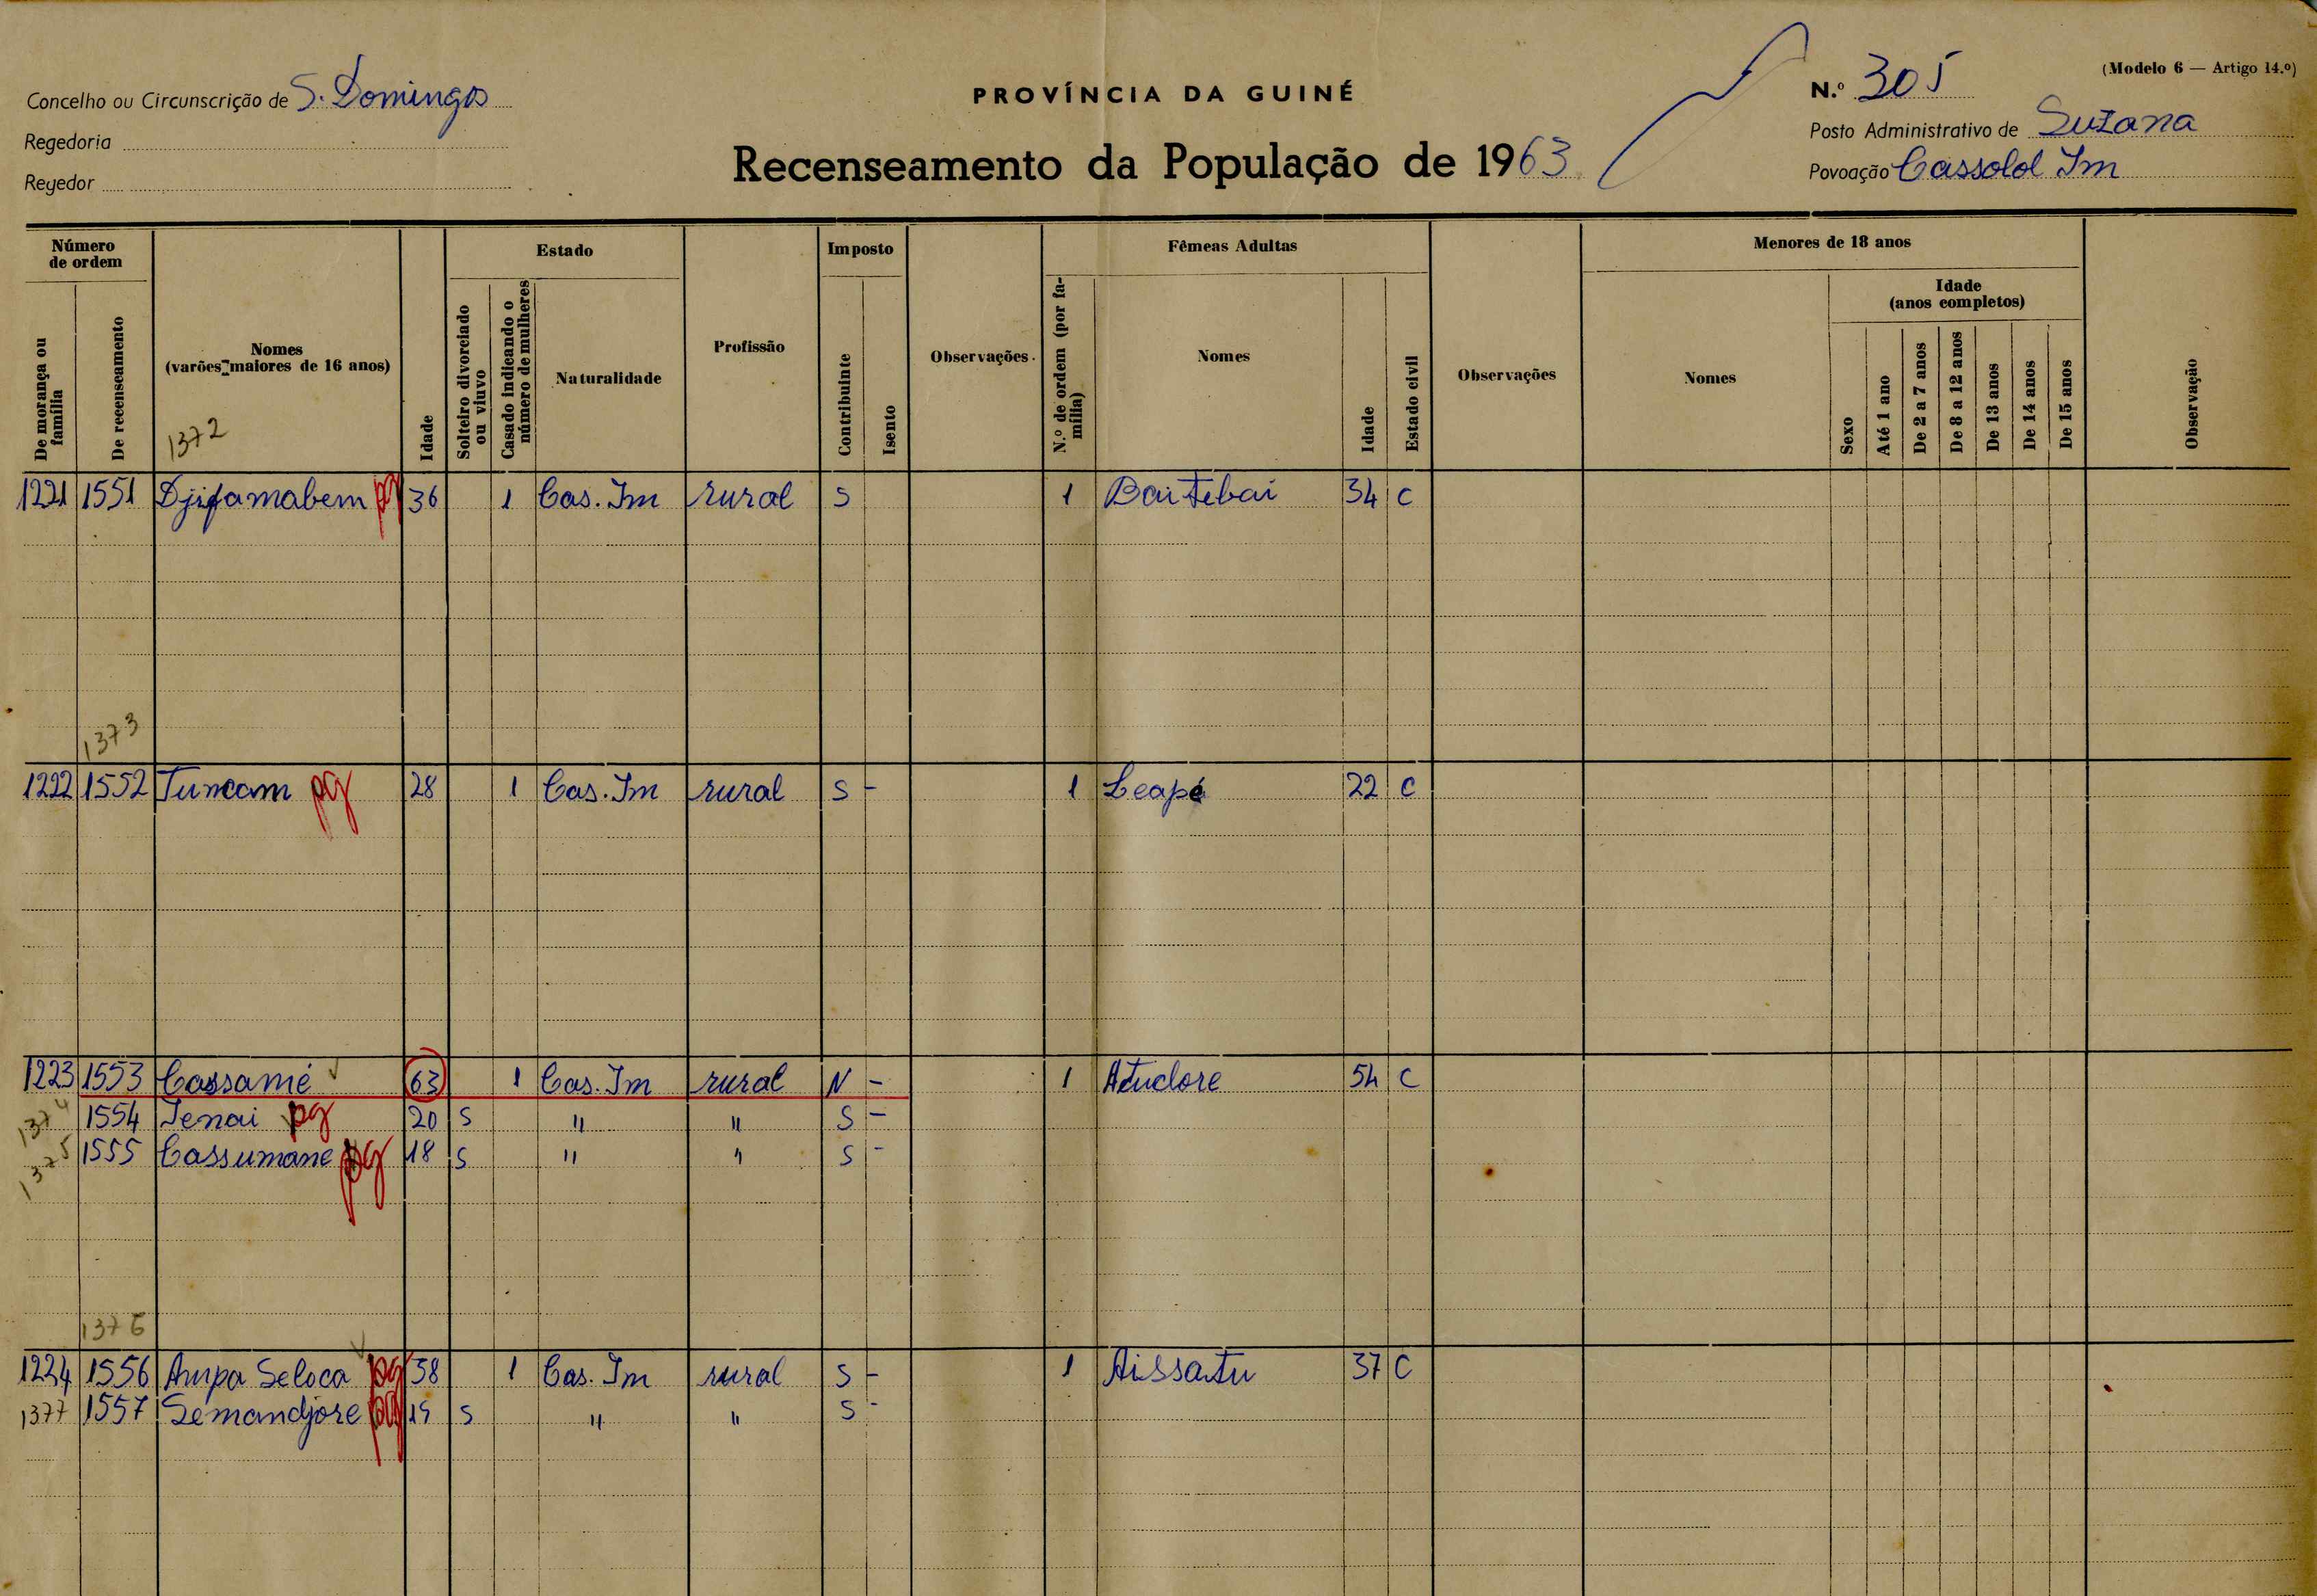 (Modelo 6 — Artigo 14.º)
Concelho ou Circunscrição de S. Domingos
PROVÍNCIA DA GUINÉ
N.º 305
Regedoria
Posto Administrativo de Suzana
Regedor
Recenseamento da População de 1963
Povoação Cassolol Im
Número de ordem
Estado
Imposto
Fêmeas Adultas
Menores de 18 anos
Idade (anos completos)
De morança ou família
De recenseamento
Nomes (varões maiores de 16 anos)
1372
Idade
Solteiro divorciado ou viuvo
Casado indicando o número de mulheres
Naturalidade
Profissão
Contribuinte
Isento
Observações
N.º de ordem (por família)
Nomes
Idade
Estado civil
Observações
Nomes
Sexo
Até 1 ano
De 2 a 7 anos
De 8 a 12 anos
De 13 anos
De 14 anos
De 15 anos
Observação
1221 1551 Djifamabem pg 36 1 Cas. Im rural S 1 Baitebai 34 C
1373
1222 1552 Tuncam pg 28 1 Cas. Im rural S - 1 Leapé 22 C
1223 1553 Cassamé 63 1 Cas. Im rural N - 1 Atuclore 54 C
1374 1554 Jenai pg 20 S " " S -
1375 1555 Cassumane pg 18 S " " S -
1376
1224 1556 Ampa Seloca pg 38 1 Cas. Im rural S - 1 Aissatu 37 C
1377 1557 Semandjore pg 19 S " " S -